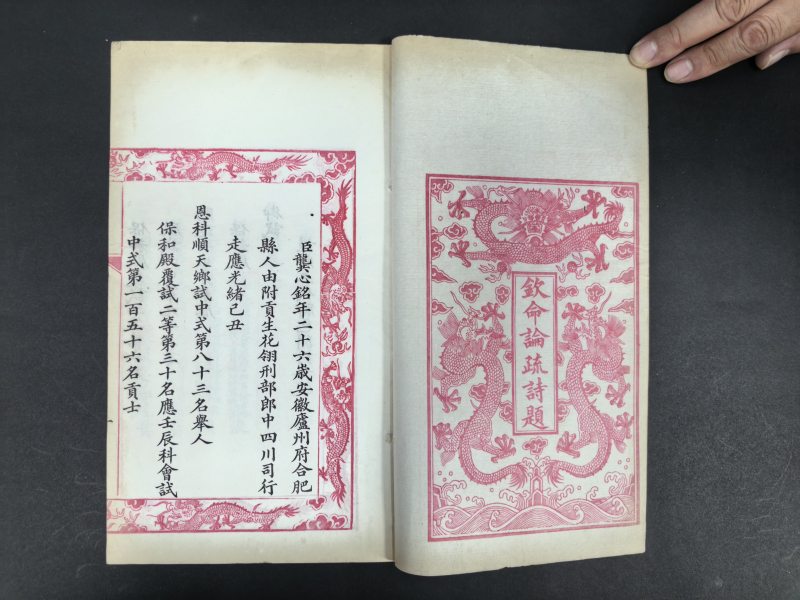 欽命論疏詩題
臣龔心銘年二十六歲安徽廬州府合肥
縣人由附貢生花翎刑部郎中四川司行
走應光緒己丑
恩科順天鄉試中式第八十三名舉人
保和殿覆試二等第三十名應壬辰科會試
中式第一百五十六名貢士